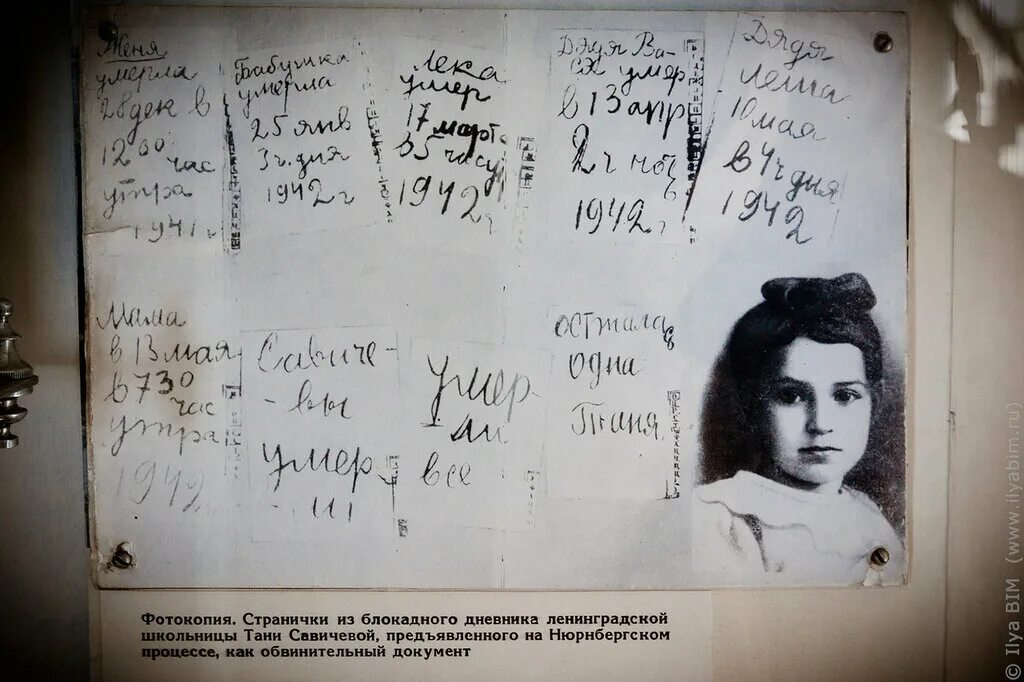 Женя
умерла
28 дек в
12 00 час
утра
1941 г
Бабушка
умерла
25 янв
3 ч. дня
1942 г
Лека
умер
17 марта
в 5 часу
1942 г
Дядя Ва-
ся умер
в 13 апр
2 ч ноч
1942 г
Дядя
Леша
10 мая
в 4 ч дня
1942
Мама
в 13 мая
в 7 30
час
утра
1942
Савиче-
-вы
умер.
ли
умер-
ли
все
осталась
одна
Таня
Фотокопия. Странички из блокадного дневника ленинградской
школьницы Тани Савичевой, предъявленного на Нюрнбергском
процессе, как обвинительный документ
© Ilya BIM (www.ilyabim.ru)